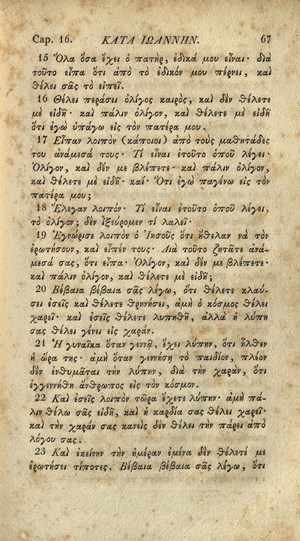 Cap. 16. ΚΑΤΑ ΙΩΑΝΝΗΝ. 67
15 Ὅλα ὅσα ἔχει ὁ πατὴρ, ἐδικά μου εἶναι· διὰ
τοῦτο εἶπα ὅτι ἀπὸ τὸ ἐδικόν μου πέρνει, καὶ
θέλει σᾶς τὸ εἰπεῖ.
16 Θέλει περάσει ὀλίγος καιρὸς, καὶ δὲν θέλετε
μὲ εἰδῆ· καὶ πάλιν ὀλίγον, καὶ θέλετε μὲ εἰδῆ
ὅτι ἐγὼ ὑπάγω εἰς τὸν πατέρα μου.
17 Εἶπαν λοιπὸν (κάποιοι) ἀπὸ τοὺς μαθητάδες
του ἀνάμεσά τους· Τί εἶναι ἐτοῦτο ὁποῦ λέγει·
Ὀλίγον, καὶ δὲν μὲ βλέπετε· καὶ πάλιν ὀλίγον,
καὶ θέλετε μὲ εἰδῆ· καί· Ὅτι ἐγὼ παγένω εἰς τὸν
πατέρα μου;
18 Ἔλεγαν λοιπόν· Τί εἶναι ἐτοῦτο ὁποῦ λέγει,
τὸ ὀλίγον; δὲν ἰξεύρομεν τί λαλεῖ.
19 Ἐγνώρισε λοιπὸν ὁ Ἰησοῦς ὅτι ἤθελαν νὰ τὸν
ἐρωτήσουν, καὶ εἶπέν τους· Διὰ τοῦτο ζητᾶτε ἀνά-
μεσά σας, ὅτι εἶπα· Ὀλίγον, καὶ δὲν μὲ βλέπετε·
καὶ πάλιν ὀλίγον, καὶ θέλετε μὲ εἰδῆ;
20 Βέβαια βέβαια σᾶς λέγω, ὅτι θέλετε κλαύ-
σει ἐσεῖς καὶ θέλετε θρηνήσει, ἀμὴ ὁ κόσμος θέλει
χαρεῖ· καὶ ἐσεῖς θέλετε λυπηθῆ, ἀλλὰ ἡ λύπη
σας θέλει γένει εἰς χαράν.
21 Ἡ γυναῖκα ὅταν γεννᾷ, ἔχει λύπην, ὅτι ἦλθεν
ἡ ὥρα της· ἀμὴ ὅταν γεννήσῃ τὸ παιδίον, πλέον
δὲν ἐνθυμᾶται τὴν λύπην, διὰ τὴν χαρὰν, ὅτι
ἐγεννήθη ἄνθρωπος εἰς τὸν κόσμον.
22 Καὶ ἐσεῖς λοιπὸν τώρα ἔχετε λύπην· ἀμὴ πά-
λιν θέλω σᾶς εἰδῆ, καὶ ἡ καρδία σας θέλει χαρεῖ·
καὶ τὴν χαράν σας κανεὶς δὲν θέλει τὴν πάρει ἀπὸ
λόγου σας.
23 Καὶ ἐκείνην τὴν ἡμέραν ἐμένα δὲν θέλετέ με
ἐρωτήσει τίποτες. Βέβαια βέβαια σᾶς λέγω, ὅτι